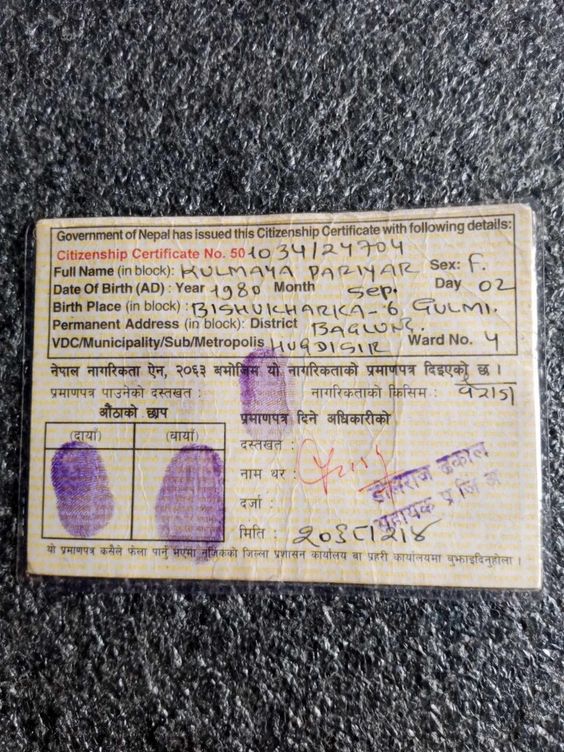 Government of Nepal has issued this Citizenship Certificate with following details:
Citizenship Certificate No. 501034/24704
Full Name (in block): KULMAYA PARIYAR Sex: F.
Date Of Birth (AD) : Year 1980 Month Sep. Day 02
Birth Place (in block) : BISHUKHARKA-6, GULMI.
Permanent Address (in block): District BAGLUNG.
VDC/Municipality/Sub/Metropolis HUGDISIR Ward No. 4
नेपाल नागरिकता ऐन, २०६३ बमोजिम यो नागरिकताको प्रमाणपत्र दिइएको छ ।
प्रमाणपत्र पाउनेको दस्तखत : नागरिकताको किसिम : वंशज
औंठाको छाप
प्रमाणपत्र दिने अधिकारीको
(दायाँ) (बायाँ)
दस्तखत :
नाम थर :
ढकाल
दर्जा :
सहायक प्र जि अ
मिति :
यो प्रमाणपत्र कसैले फेला पारेमा नजिकको जिल्ला प्रशासन कार्यालय वा प्रहरी कार्यालयमा बुझाइदिनुहोला ।